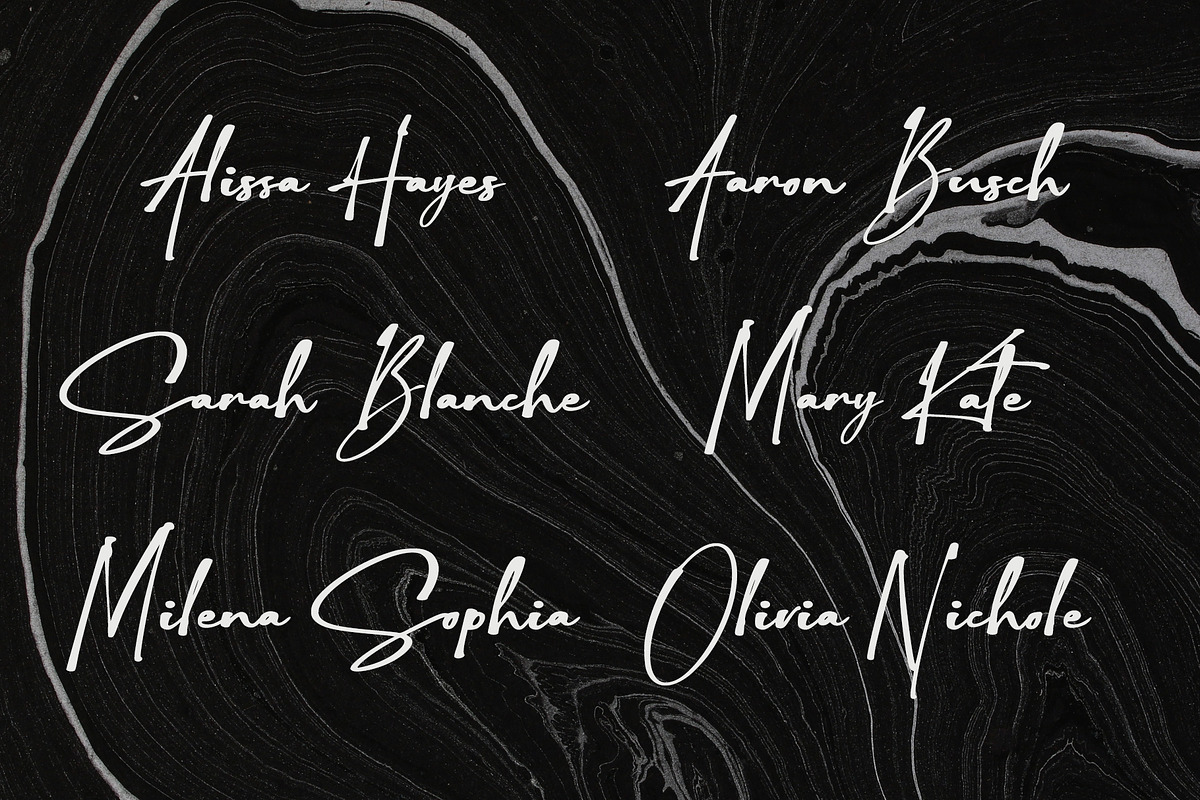 Alissa Hayes
Aaron Busch
Sarah Blanche
Mary Kate
Milena Sophia
Olivia Nichole